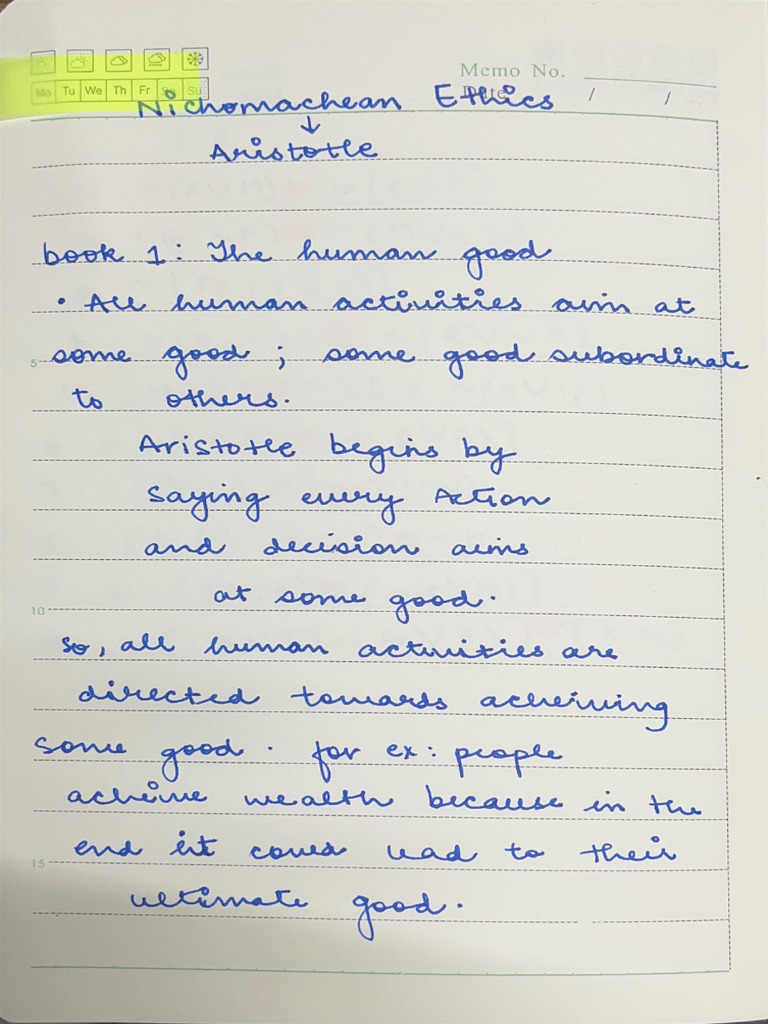 Memo No.
Mo Tu We Th Fr Sa Su
Date / /
Nichomachean Ethics
↓
Aristotle
book 1: The human good
• All human activities aim at
5 some good ; some good subordinate
to others.
Aristotle begins by
saying every Action
and decision aims
at some good.
10
so, all human activities are
directed towards acheiving
some good. for ex: people
acheive wealth because in the
end it could lead to their
15
ultimate good.